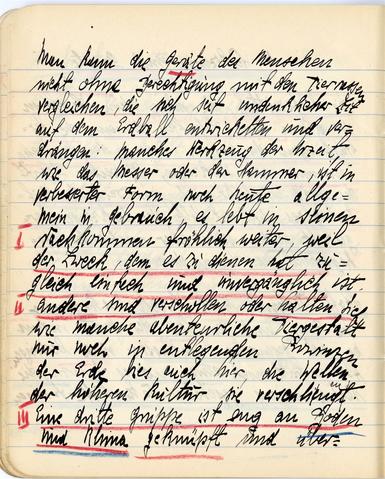 Man kann die Geräte des Menschen
nicht ohne Berechtigung mit den Tierrassen
vergleichen, die sich seit undenklicher Zeit
auf dem Erdball entwickelten und ver-
drängen: manches Werkzeug der Urzeit,
wie das Messer oder der Hammer, ist in
verbesserter Form noch heute allge-
mein in Gebrauch, es lebt in seinen
I Nachkommen fröhlich weiter, weil
der Zweck, dem es zu dienen hat zu-
gleich einfach und unvergänglich ist.
II andere sind verschollen oder halten sich
wie manche abenteuerliche Tiergestalt
nur noch in entlegenden
der Erde bis auch hier die Wellen
der höheren Kultur sie verschlingt.
III Eine dritte Gruppe ist eng an Boden
und Klima geknüpft und über-